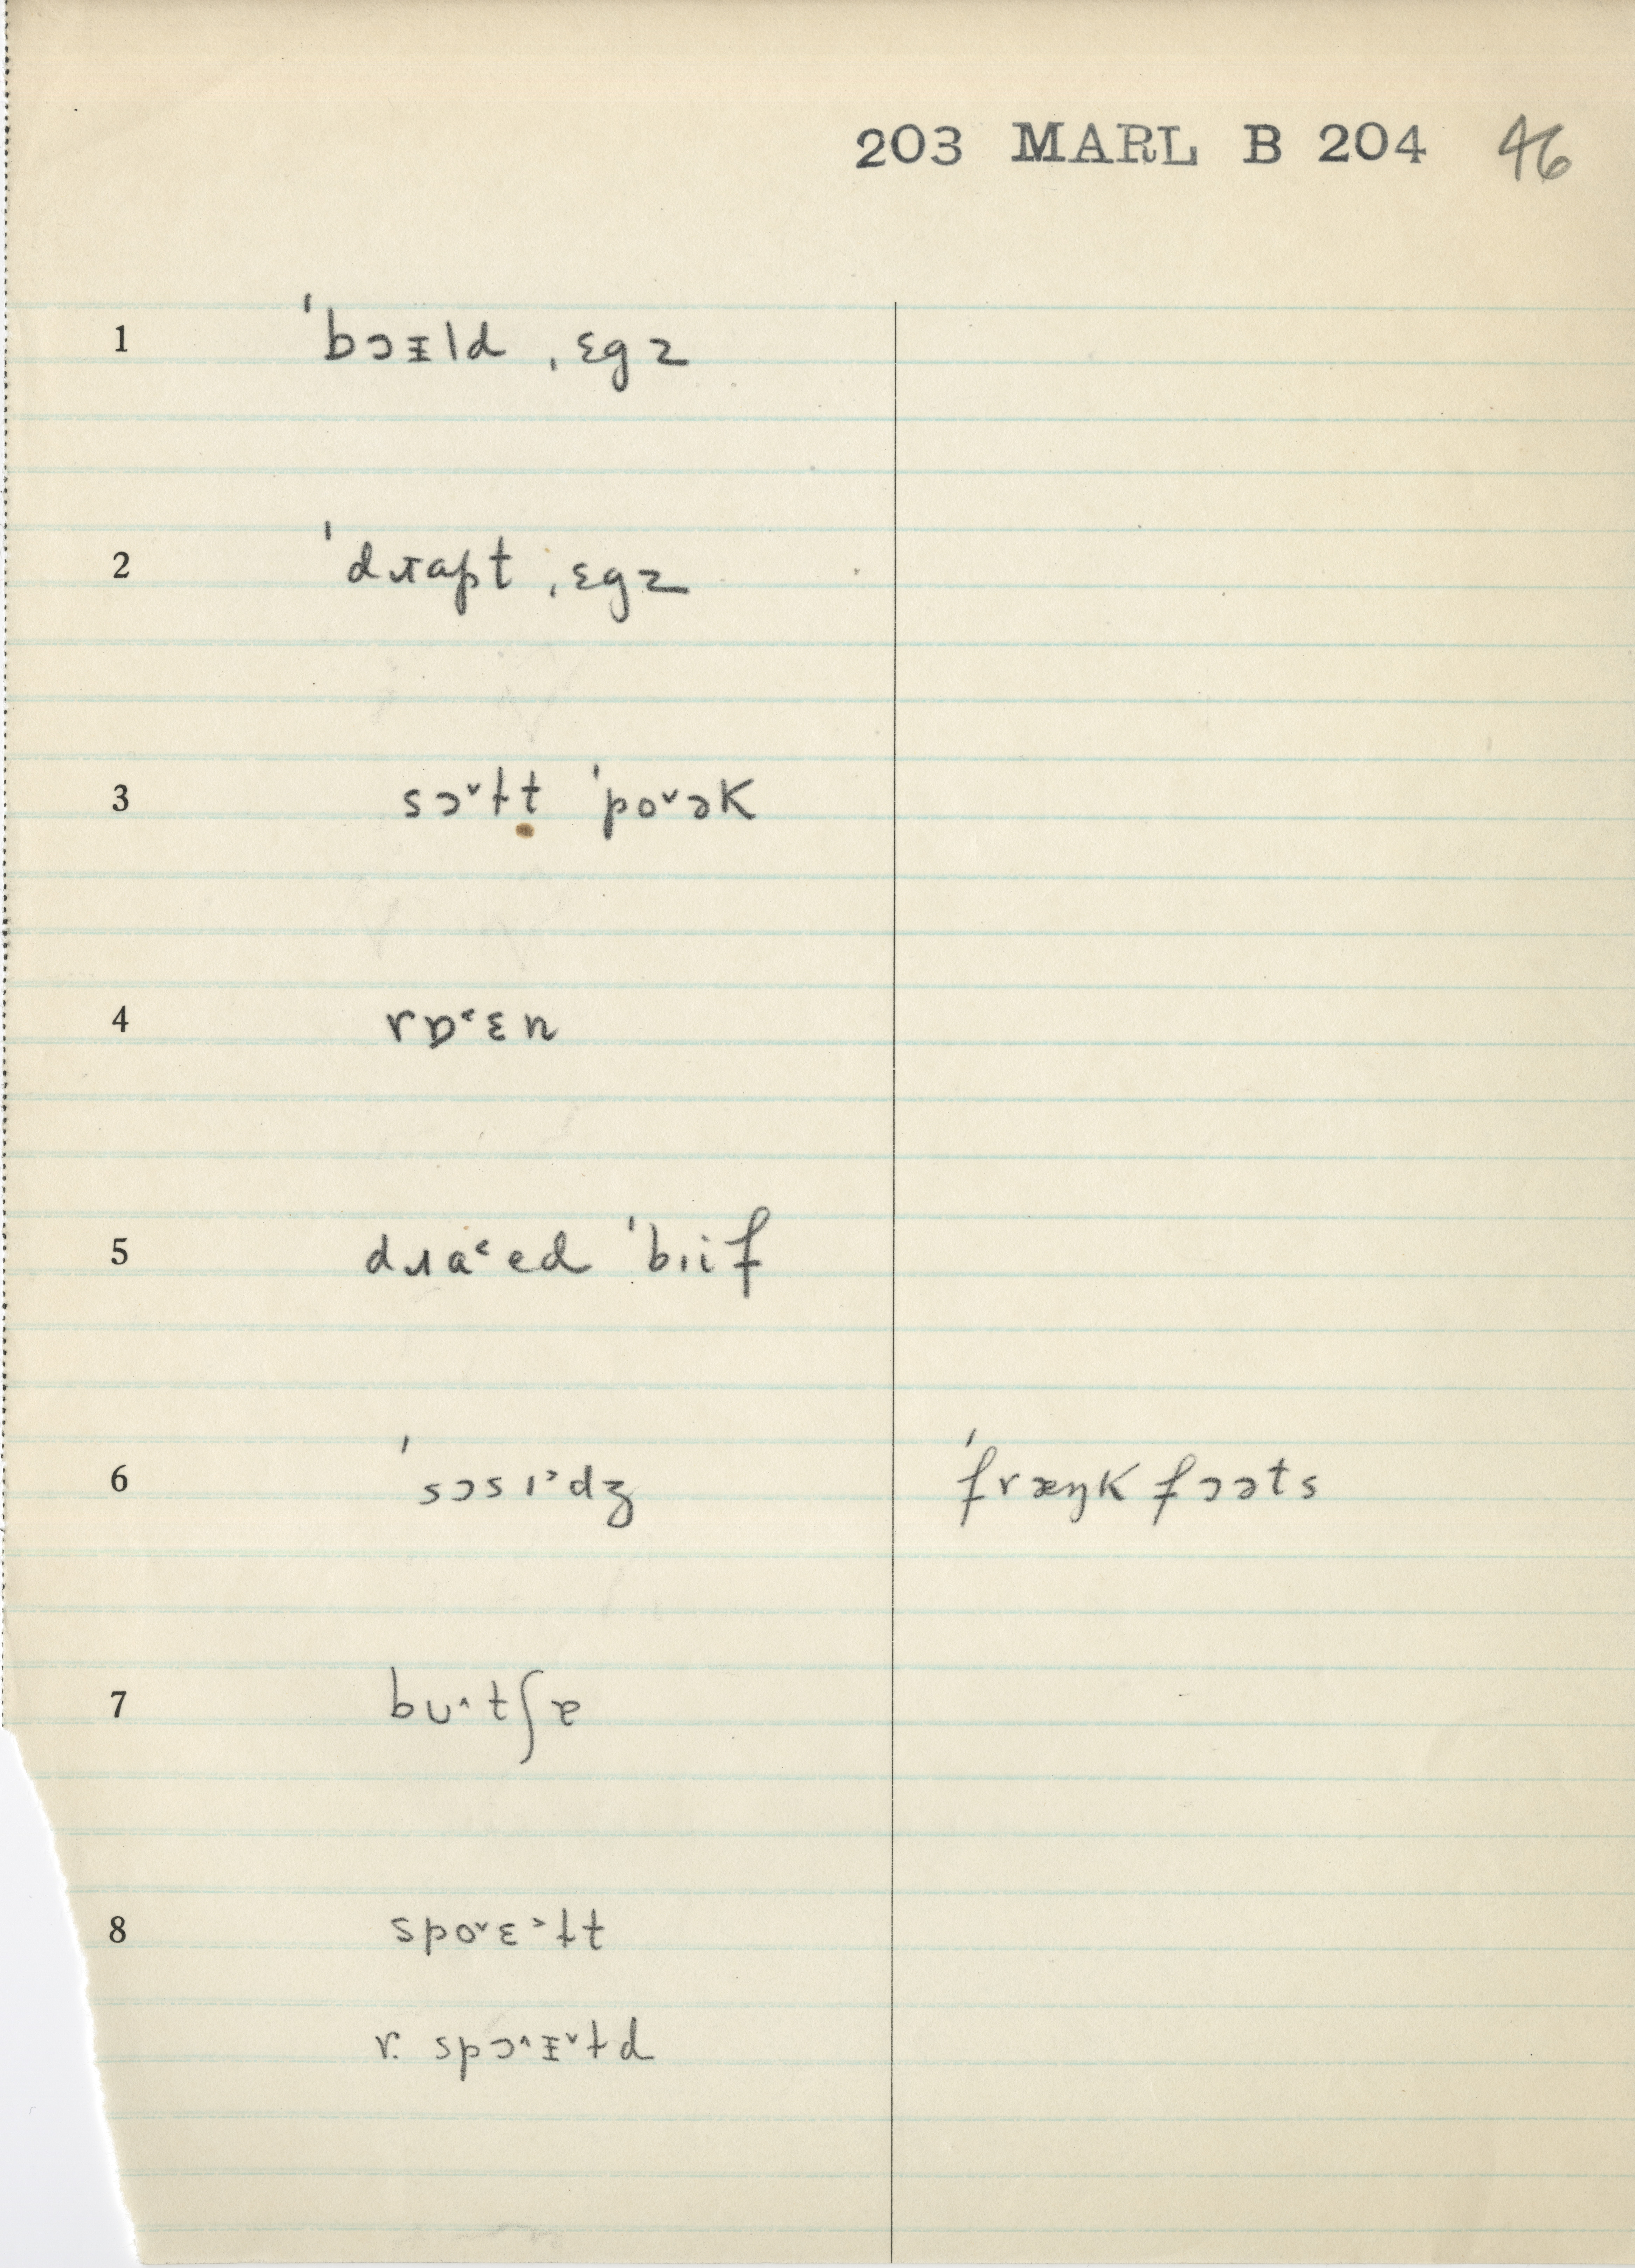 203 MARL B 204 46
1 ˈbɔᵻld ˌɛgz
2 ˈdɹapt ˌɛgz
3 sɔ˅ɫt ˈpo˅ək
4 rɒ˂ɛn
5 dɹa˂ed ˈbɪif
6 ˈsɔsɪ˃dʒ ˈfræŋkfɔəts
7 bʊ˄tʃɐ
8 spo˅ɛ˃ɫt
r. spɔ˄ᵻ˅ɫd